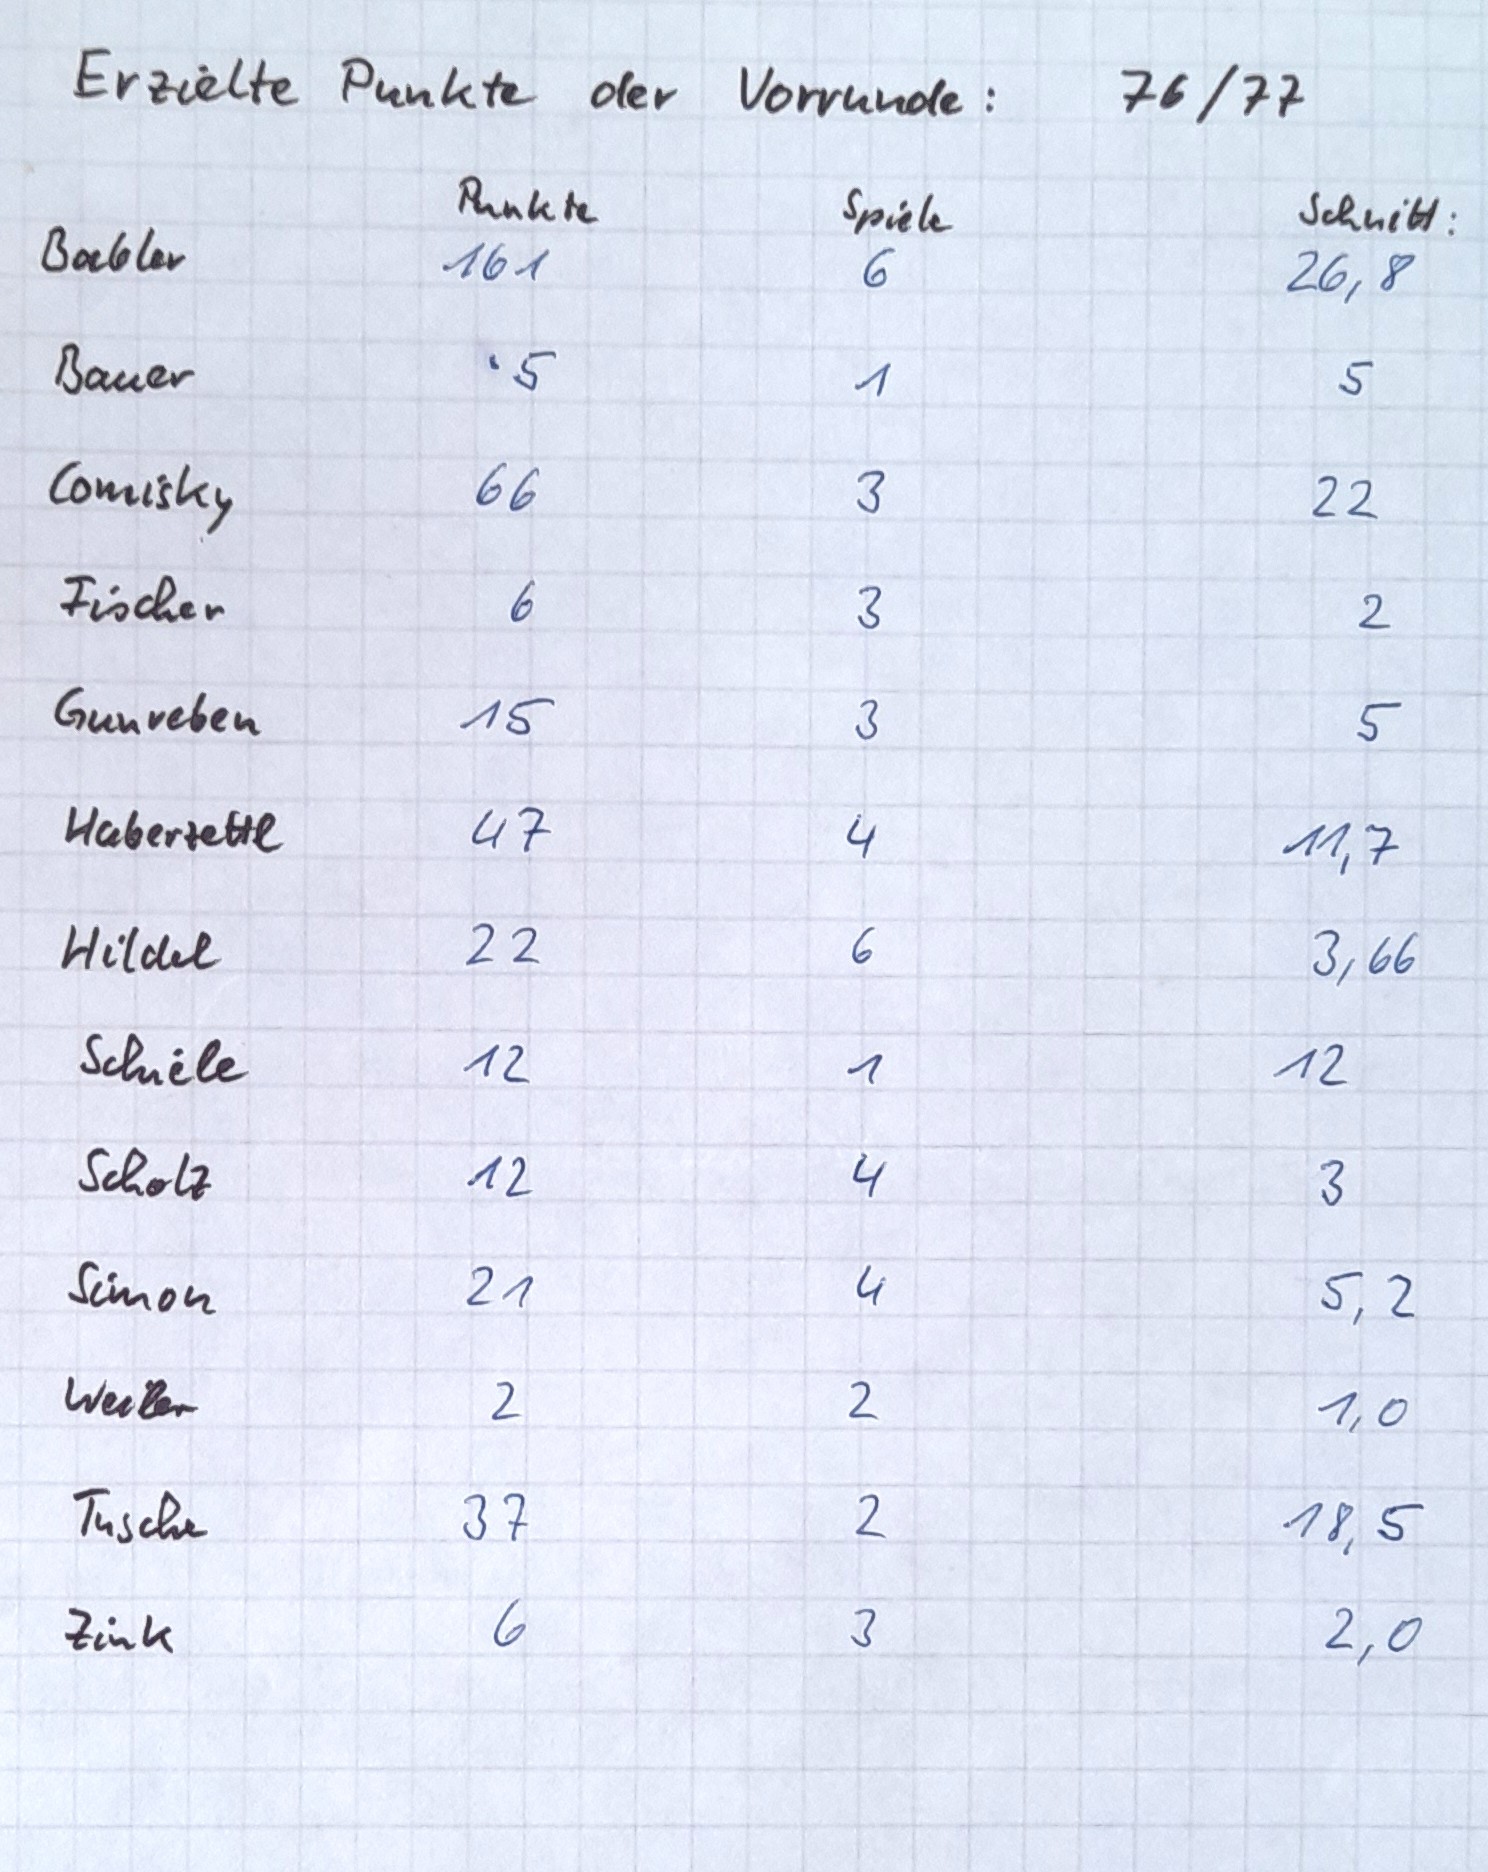 Erzielte Punkte der Vorrunde: 76/77
Punkte Spiele Schnitt:
Babler 161 6 26,8
Bauer 5 1 5
Comisky 66 3 22
Fischer 6 3 2
Gunreben 15 3 5
Haberzettl 47 4 11,7
Hildel 22 6 3,66
Schiele 12 1 12
Scholz 12 4 3
Simon 21 4 5,2
Weiler 2 2 1,0
Tusche 37 2 18,5
Zink 6 3 2,0